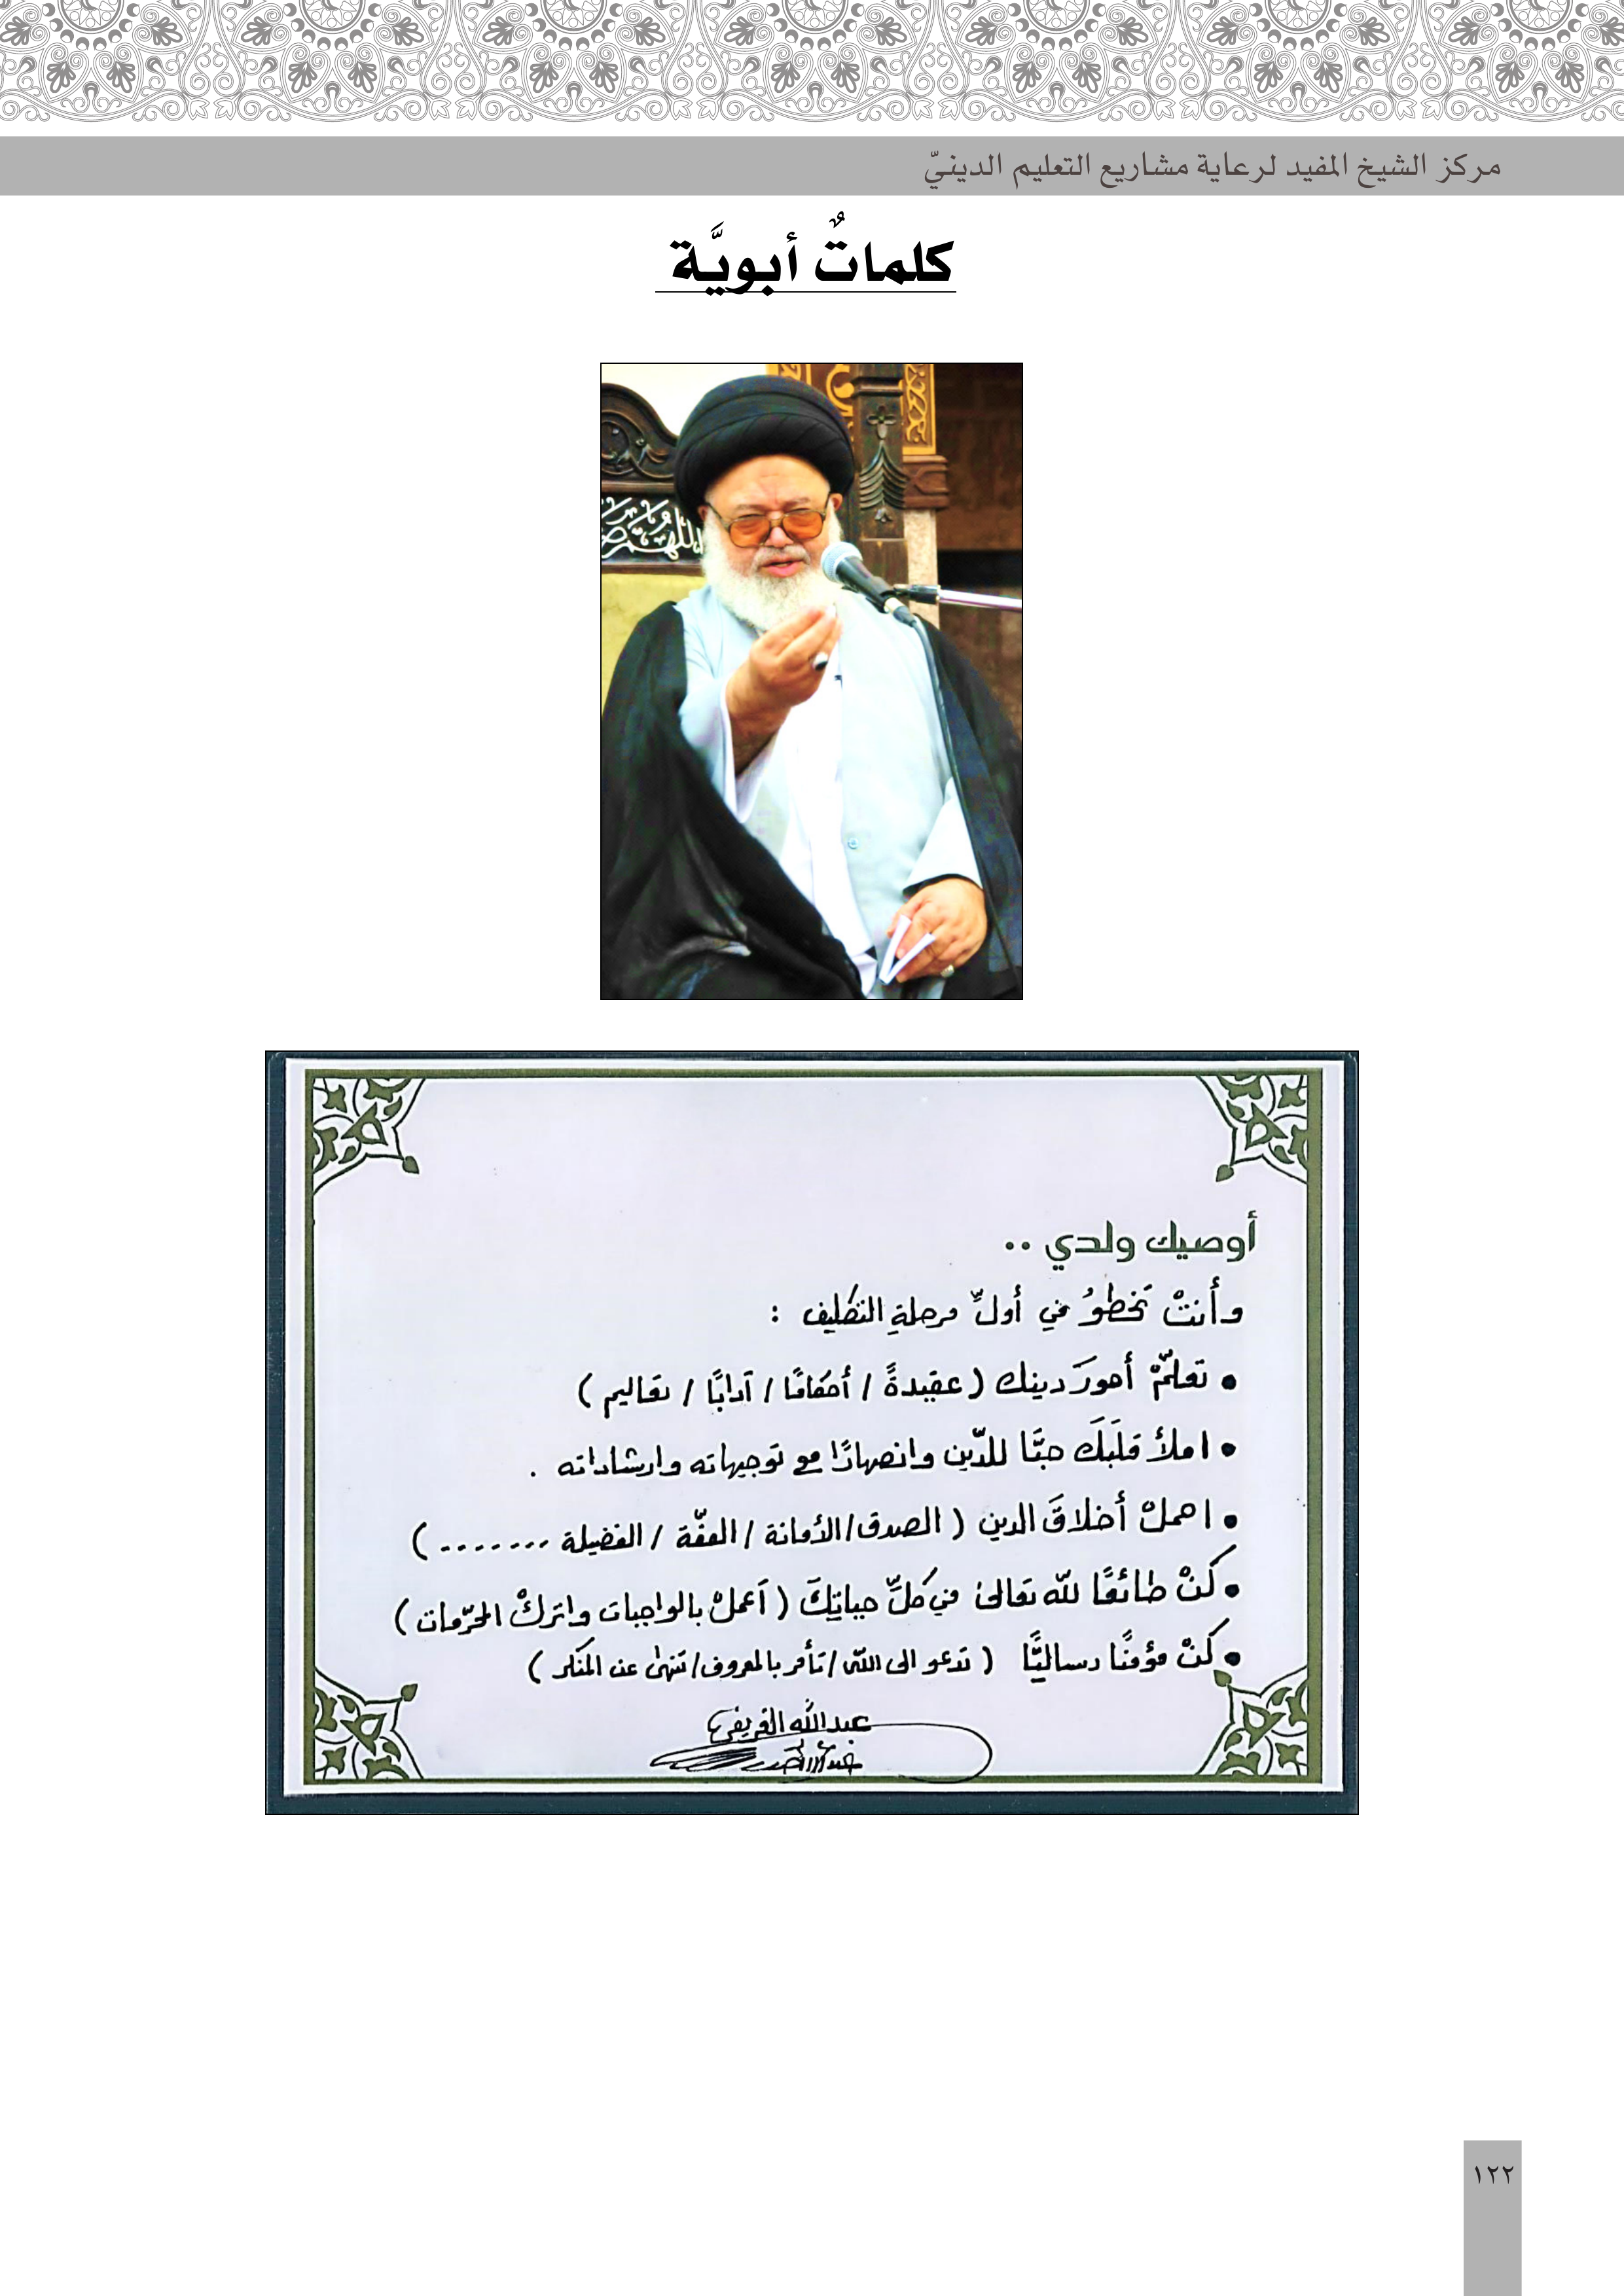 مركز الشيخ المفيد لرعاية مشاريع التعليم الدينيّ
كلماتٌ أبويَّة
اللهم
أوصيك ولدي ..
وأنتْ تخطوُ في أول مرحلةِ التكليف :
• تعلّمْ أمورَ دينك (عقيدةً / أحكامًا / آدابًا / تعاليم)
• املأ قلبَكَ حبًّا للدّين وانصهارًا مع توجيهاته وارشاداته .
• احملْ أخلاقَ الدين (الصدق/الأمانة / العفّة / الفضيلة ........)
• كنْ طائعًا لله تعالىٰ في كلِّ حياتِكَ (أعملْ بالواجبات واتركْ المحرّمات)
• كنْ مؤمنًا رساليًّا (تدعو الى الله / تأمر بالمعروف / تنهىٰ عن المنكر)
عبدالله الغريفي
١٢٢